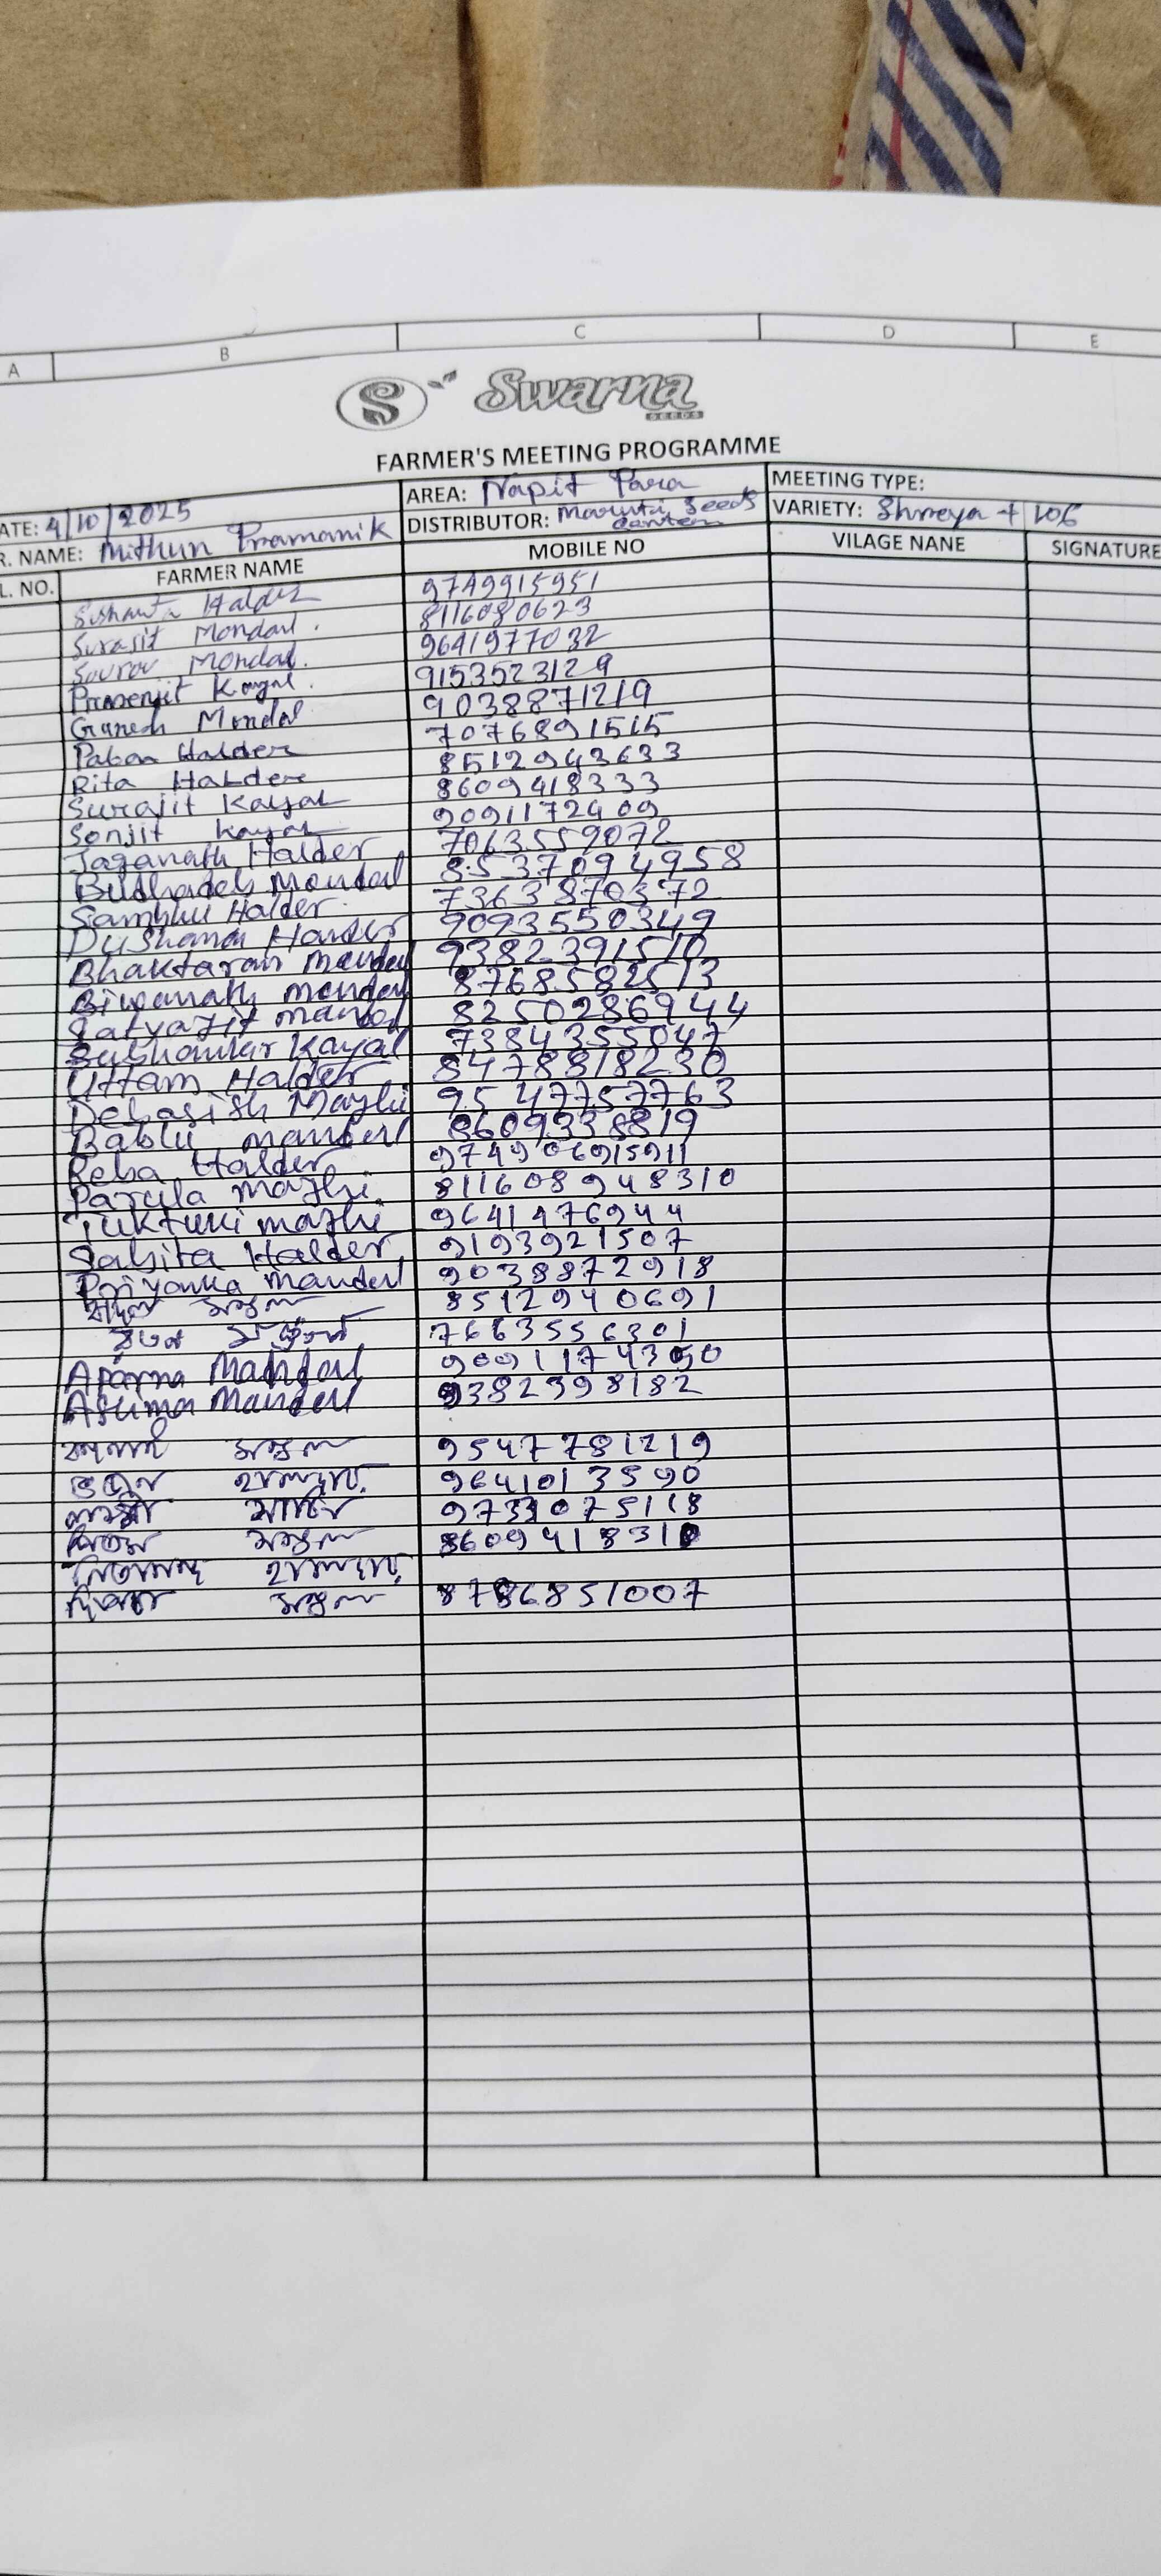 A B C D E
S Swarna
SEEDS
FARMER'S MEETING PROGRAMME
ATE: 4/10/2025 AREA: Napit Para MEETING TYPE:
R. NAME: Mithun Pramanik DISTRIBUTOR: Maruti Seeds VARIETY: Shreya +
L. NO. FARMER NAME MOBILE NO VILAGE NANE SIGNATURE
Sushanta Halder 9749915951
Surasit Mondal. 8116080623
Sourov Mondal. 9641977032
Prosenjit Kayal. 9153523129
Ganesh Mondal 9038871219
Paban Halder 7076891515
Rita Halder 8512943633
Surajit Kayal 8609418333
Sonjit Kayal 9091172409
Jaganath Halder 7063559072
Budhadeb Mondal 8537094958
Sambhu Halder. 7363870372
Halder 9093550349
Bhaktaram Mondal 9382391510
Biswanath mondal 8768582513
Satyajit 8250286944
Subhankar Kayal 7384355047
Uttam Halder 8478818230
Debasish Majhi 9547757763
Bablu mandal 8609338819
Reba Halder
Parula majhi. 811608948310
Tuktuki majhi 9641476944
Sabita Halder 9193921507
Priyanka mandal 9038872918
মন্ডল 8512940691
7663556301
Aparna Mandal
Asima Mandal 9382398182
মন্ডল 9547781219
হালদার 9641013590
লক্ষ্মী মাঝি
মন্ডল 8609418310
হালদার
মন্ডল